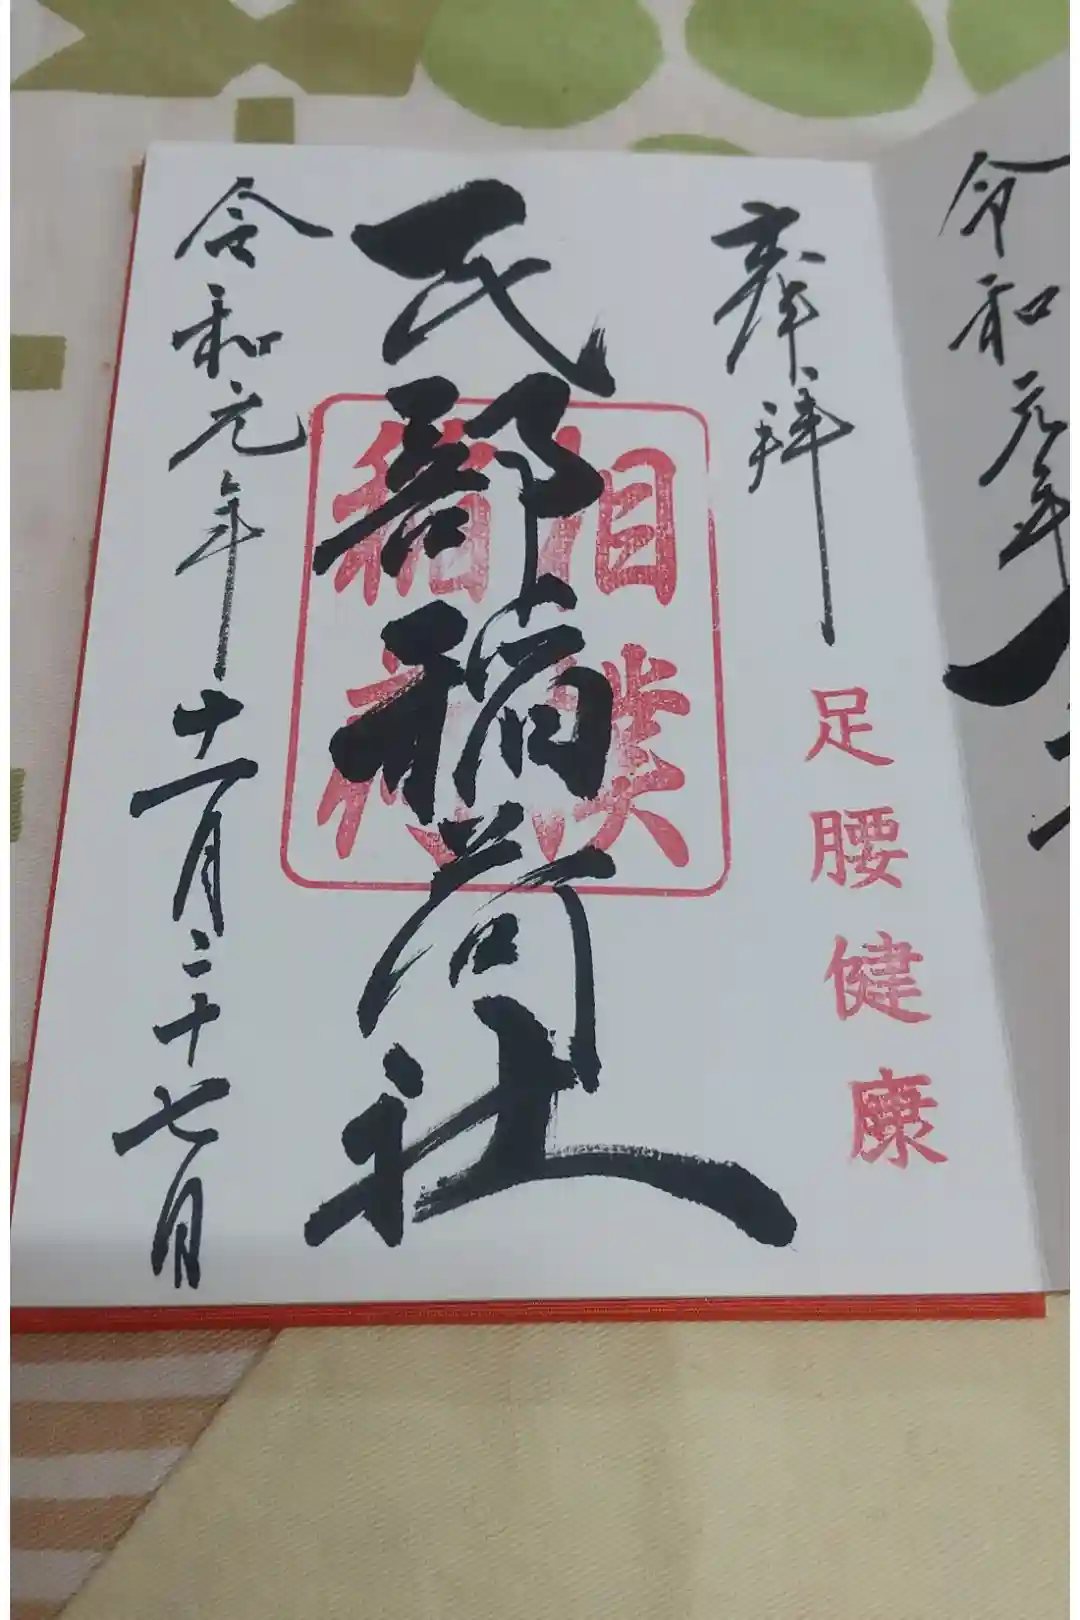 令和元年
奉拝
足腰健康
相撲
民部稲荷社
令和元年十一月二十七日